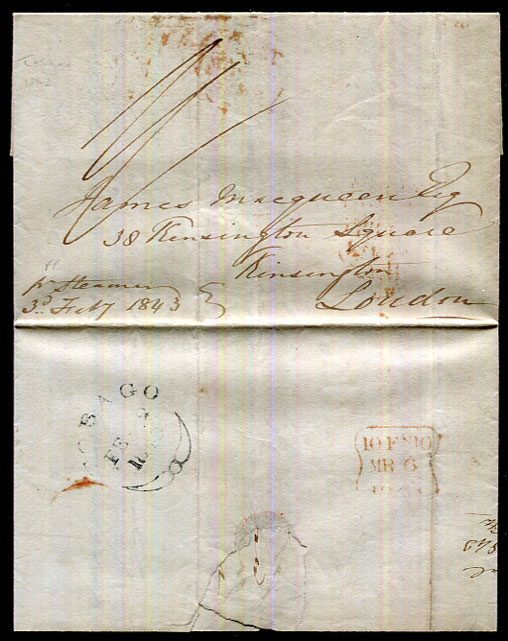 James Macqueen Esq
38 Kensington Square
Kinsington
London
pr Steamer
3d Feby 1843
BAGO
FE
10 F N 10
MR 6